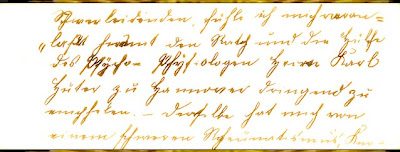 Schwerleidenden, fühle ich mich veran=
„laßt hiermit den Rath und die Hilfe
des Psycho-Physiologen Herrn Karl
Huter zu Hannover dringend zu
empfehlen. – Derselbe hat mich von
einem schweren Rheumatismus,